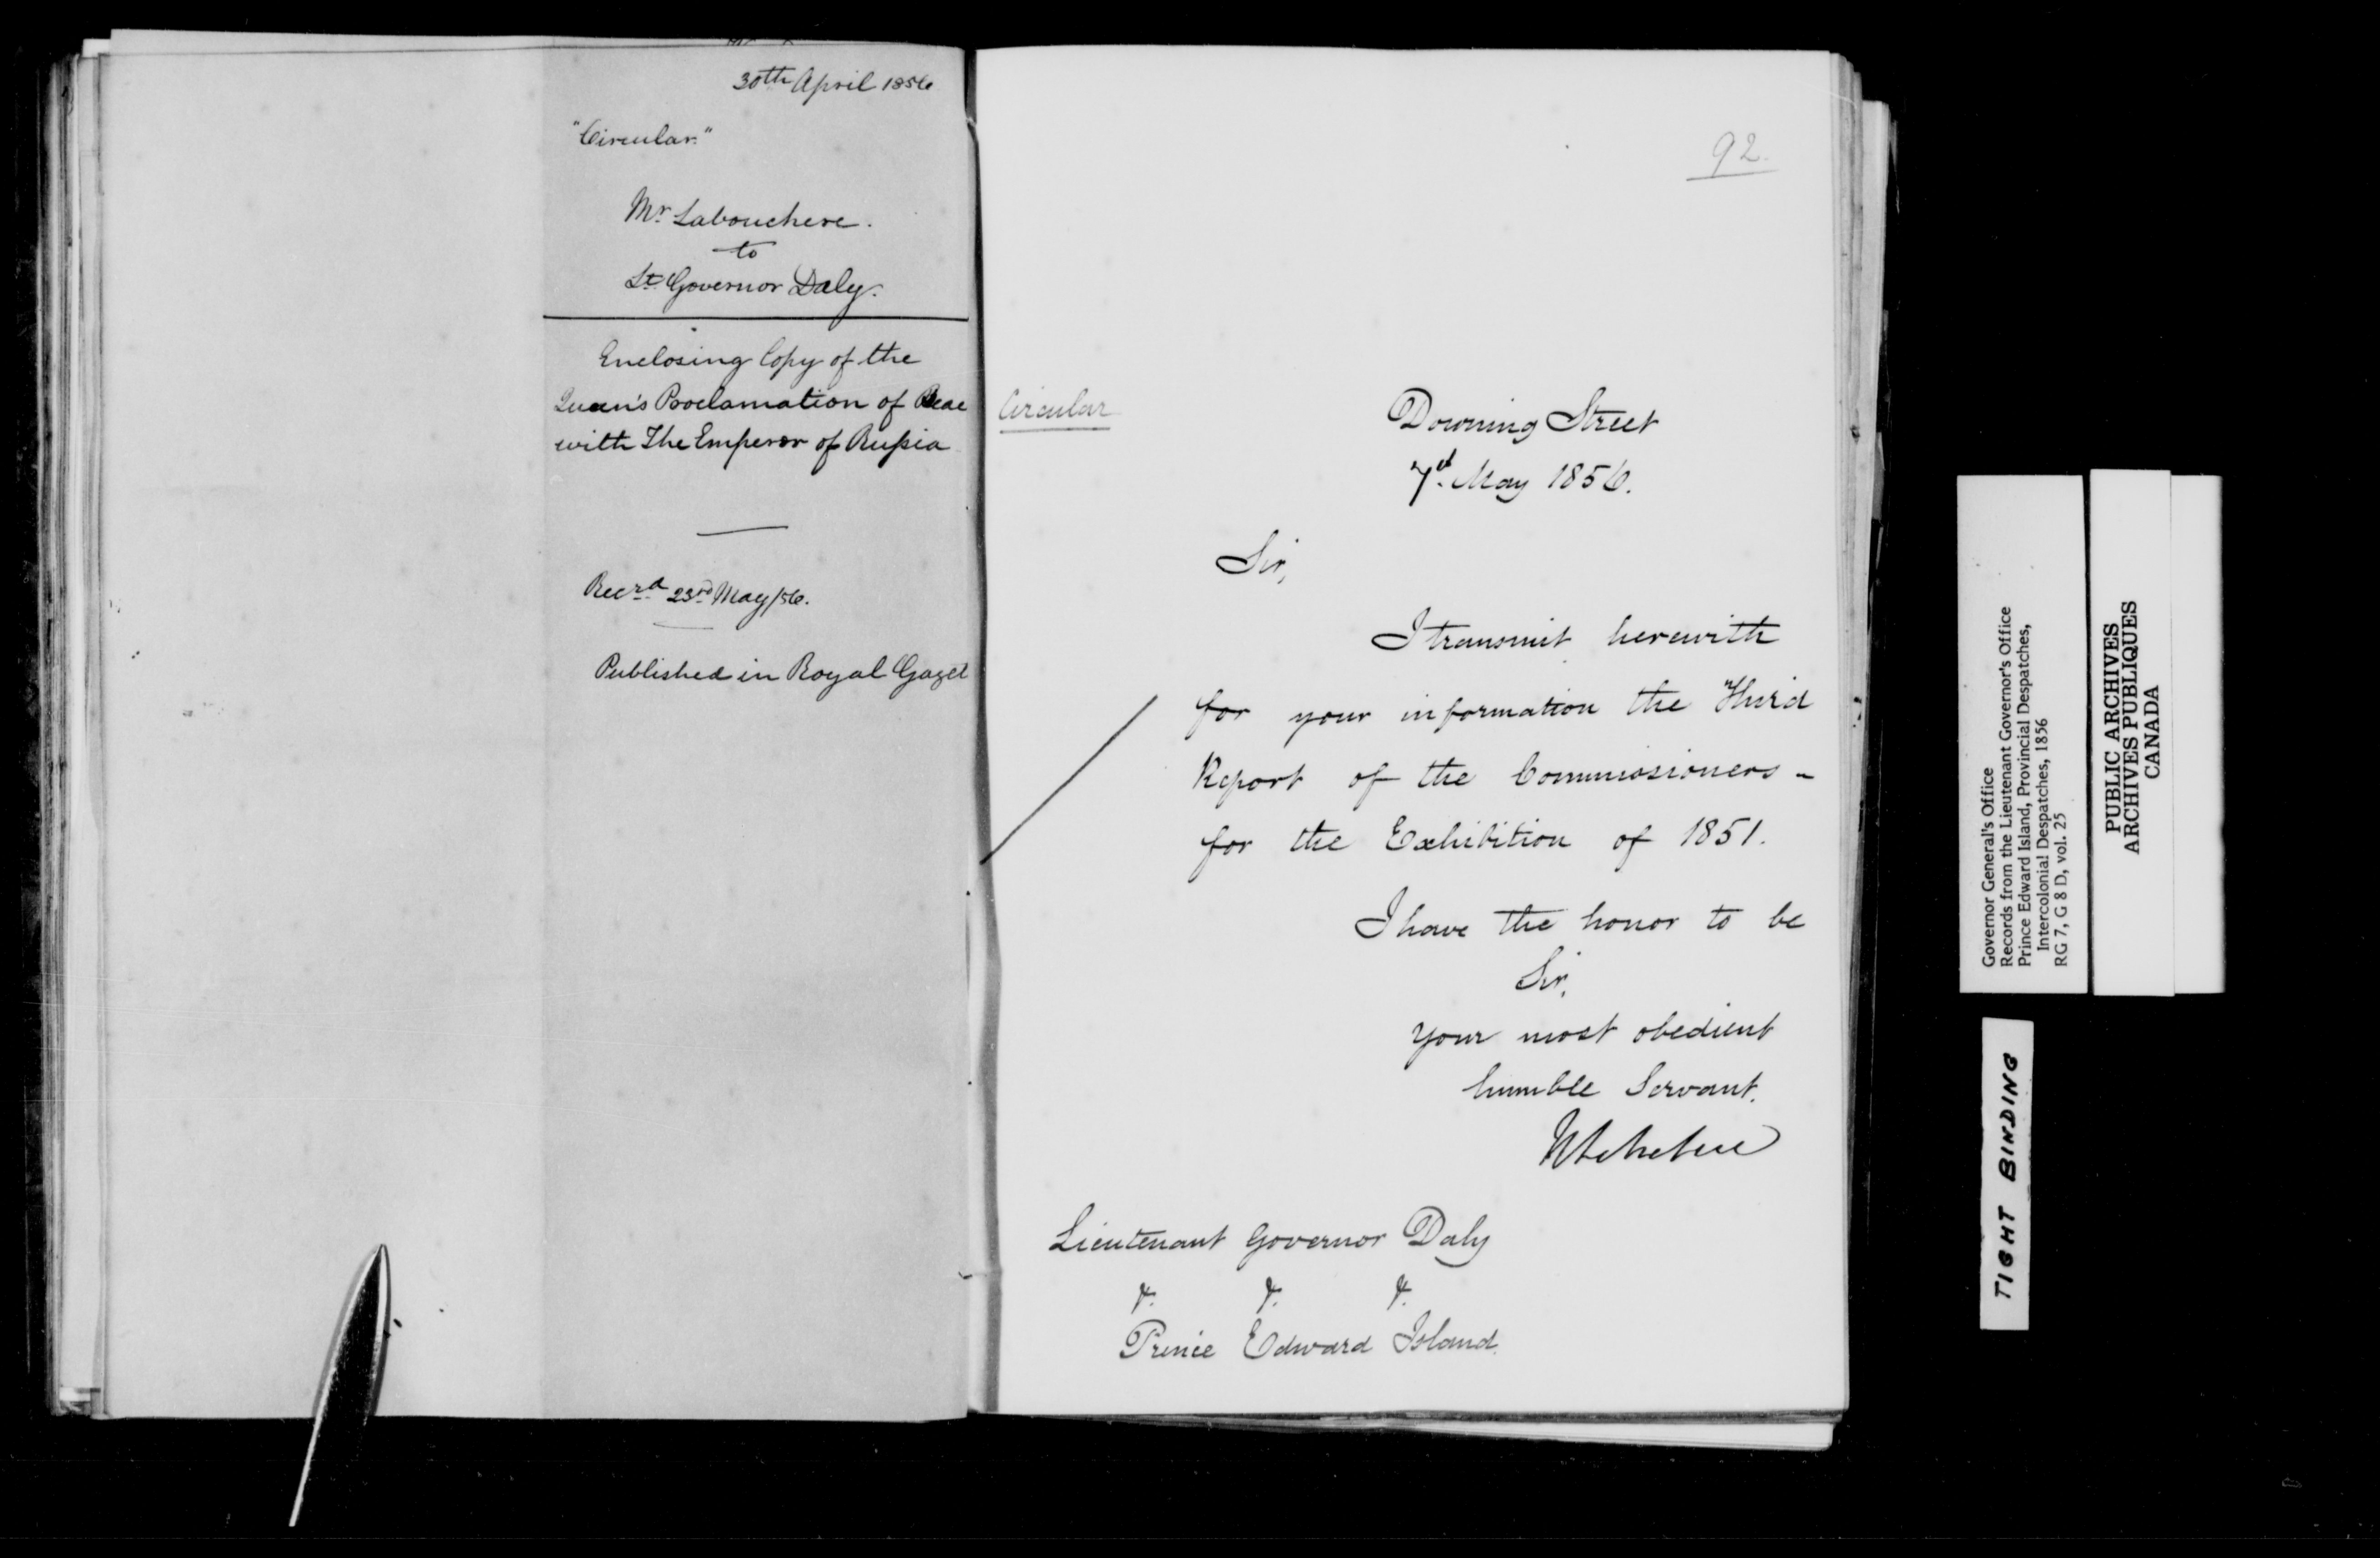 30th April 1856
"Circular."
Mr. Labouchere.
to
Lt. Governor Daly.
Enclosing Copy of the
Queen's Proclamation of Peac
with The Emperor of Russia
Recvd. 23rd May/56.
Published in Royal Gazet
92.
Circular
Downing Street
May 1856.
Sir,
I transmit herewith
for your information the Third
Report of the Commissioners -
for the Exhibition of 1851.
I have the honor to be
Sir,
Your most obedient
humble Servant.
Lieutenant Governor Daly
&. &. &.
Prince Edward Island.
Governor General's Office
Records from the Lieutenant Governor's Office
Prince Edward Island, Provincial Despatches,
Intercolonial Despatches, 1856
RG 7, G 8 D, vol. 25
PUBLIC ARCHIVES
ARCHIVES PUBLIQUES
CANADA
TIGHT BINDING